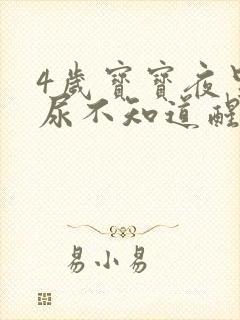 4歲寶寶夜里
尿不知道醒
易小易